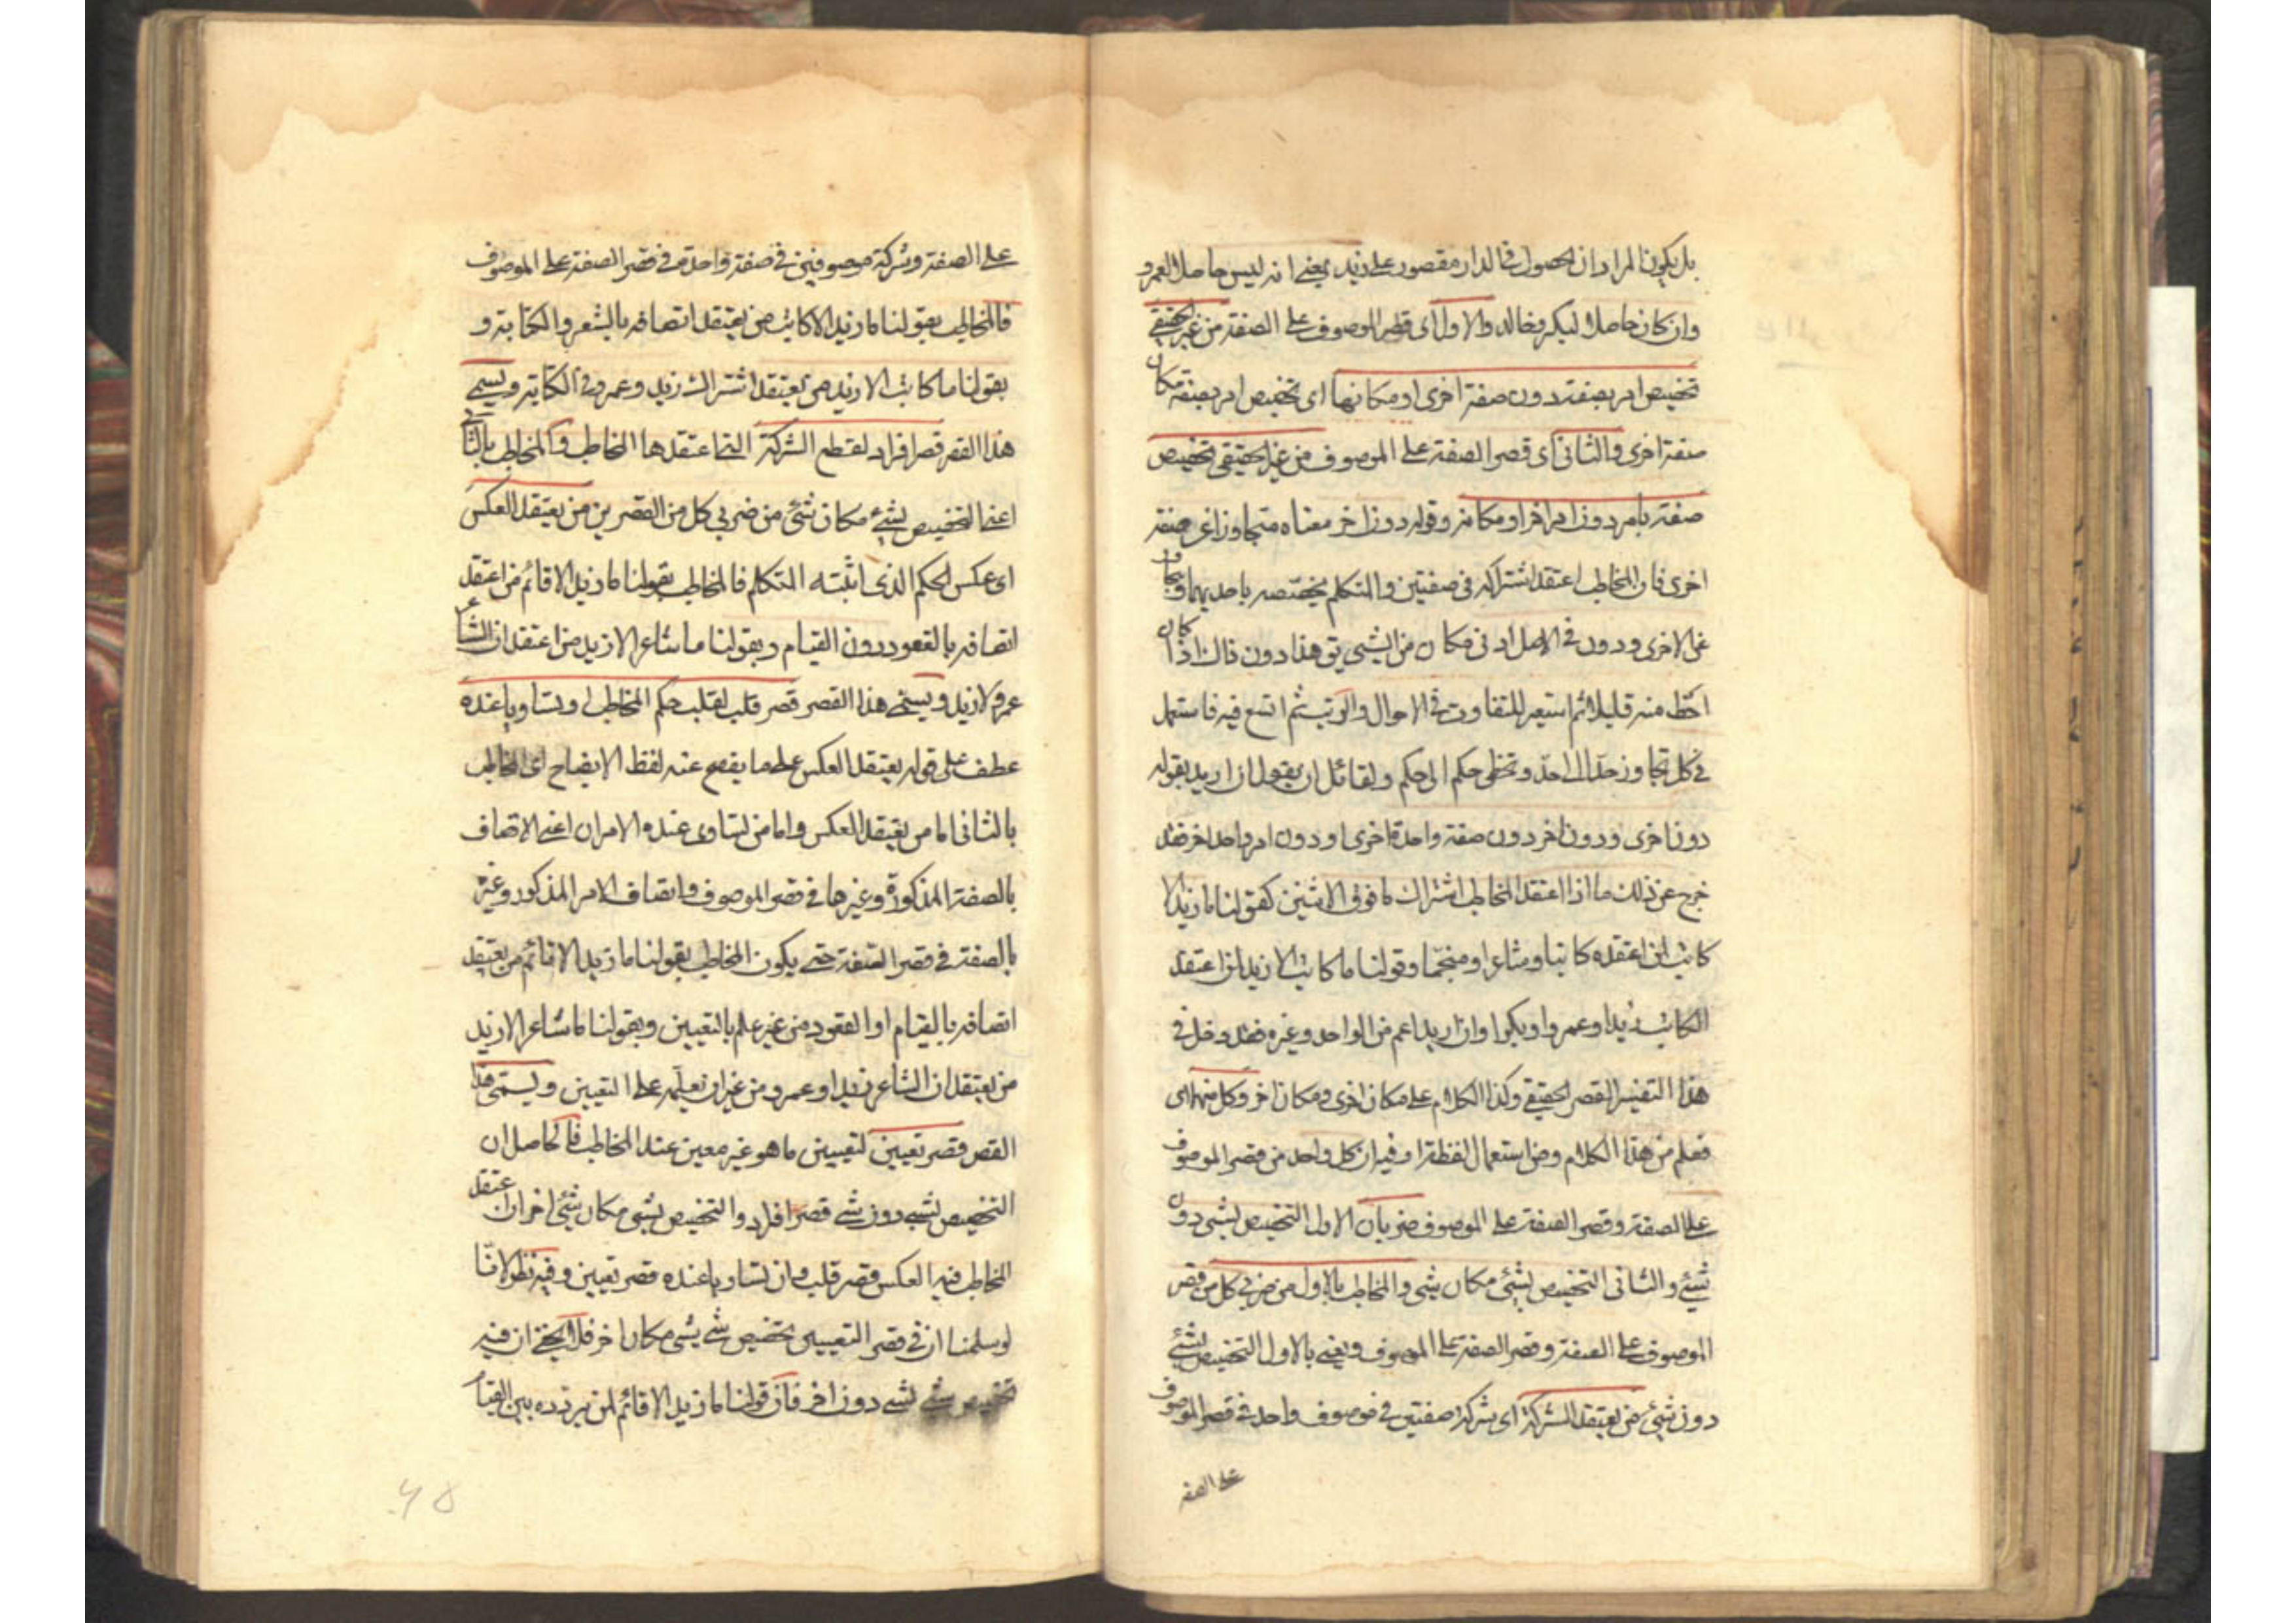 بل يكون المراد ان الحصول في الدار مقصور على زيد بمعنى انه ليس حاصلا لعمرو
وان كان حاصلا لبكر وخالد والاول اى قصر الموصوف على الصفة من غير الحقيقي
تخصيص امر بصفة دون صفة اخرى او مكانها اى تخصيص امر بصفة مكان
صفة اخرى والثانى اى قصر الصفة على الموصوف من غير الحقيقي تخصيص
صفة بامر دون امر اخر او مكانه وقوله دون اخرى معناه متجاوزا عن صفة
اخرى فان المخاطب اعتقد اشتراكه فى صفتين والمتكلم يخصّصه باحديهما ويتجاوز
عن الاخرى ودون في الاصل ادنى مكان من الشىء يق هذا دون ذاك اذا كان
احّط منه قليلا ثم استعير للتفاوت في الاحوال والرتب ثم اتسع فيه فاستعمل
في كل تجاوز حدّ الى حدّ وتخطى حكم الى حكم ولقائل ان يقول ان اريد بقوله
دون اخرى ودون اخر دون صفة واحدة اخرى او دون امر واحد اخر فقد
خرج عن ذلك ما اذا اعتقد المخاطب اشتراك ما فوق الاثنين كقولنا ما زيد الا
كاتب لمن اعتقده كاتبا وشاعرا ومنجّما وقولنا ما كاتب الا زيد لمن اعتقد
الكاتب زيدا وعمروا وبكرا وان اريد اعم من الواحد وغيره فقد دخل في
هذا التفسير القصر الحقيقي وكذا الكلام على مكان اخرى ومكان اخر وكل منهما اى
فعلم من هذا الكلام ومن استعمال لفظة او فيه ان كل واحد من قصر الموصوف
على الصفة وقصر الصفة على الموصوف ضربان الاول التخصيص بشىء دون
شىء والثانى التخصيص بشىء مكان شىء والمخاطب بالاول من ضربى كل من قصر
الموصوف على الصفة وقصر الصفة على الموصوف ويعنى بالاول التخصيص بشىء
دون شىء من يعتقد الشركة اى شركة صفتين في موصوف واحد في قصر الموصوف
على الصفة
على الصفة وشركة موصوفين في صفة واحدة في قصر الصفة على الموصوف
فالمخاطب بقولنا ما زيد الا كاتب من يعتقد اتصافه بالشعر والكتابة و
بقولنا ما كاتب الا زيد من يعتقد اشتراك زيد وعمرو في الكتابة ويسمى
هذا القصر قصر افراد لقطع الشركة التى اعتقدها المخاطب والمخاطب بالثانى
اعنى التخصيص بشىء مكان شىء من ضربى كل من القصرين من يعتقد العكس
اى عكس الحكم الذى اثبته المتكلم فالمخاطب بقولنا ما زيد الا قائم من اعتقد
اتصافه بالقعود دون القيام وبقولنا ما شاعر الا زيد من اعتقد ان الشاعر
عمرو لا زيد ويسمى هذا القصر قصر قلب لقلب حكم المخاطب او تساويا عنده
عطف على قوله يعتقد العكس على ما يفصح عنه لفظ الايضاح اى المخاطب
بالثانى اما من يعتقد العكس واما من تساوى عنده الامران اعنى الاتصاف
بالصفة المذكورة وغيرها في قصر الموصوف واتصاف الامر المذكور وغيره
بالصفة في قصر الصفة حتى يكون المخاطب بقولنا ما زيد الا قائم من يعتقد
اتصافه بالقيام او القعود من غير علم بالتعيين وبقولنا ما شاعر الا زيد
من يعتقد ان الشاعر زيد او عمرو من غير ان يعلّمه على التعيين ويسمّى هذا
القصر قصر تعيين لتعيين ما هو غير معين عند المخاطب فالحاصل ان
التخصيص بشىء دون شىء قصر افراد والتخصيص بشىء مكان شىء اخر ان اعتقد
المخاطب فيه العكس قصر قلب وان تساويا عنده قصر تعيين وفيه نظر لانّا
لو سلمنا ان في قصر التعيين تخصيص شىء بشىء مكان اخر فلا يخفى ان فيه
تخصيص شىء بشىء دون اخر فان قولنا ما زيد الا قائم لمن يردده بين القيام